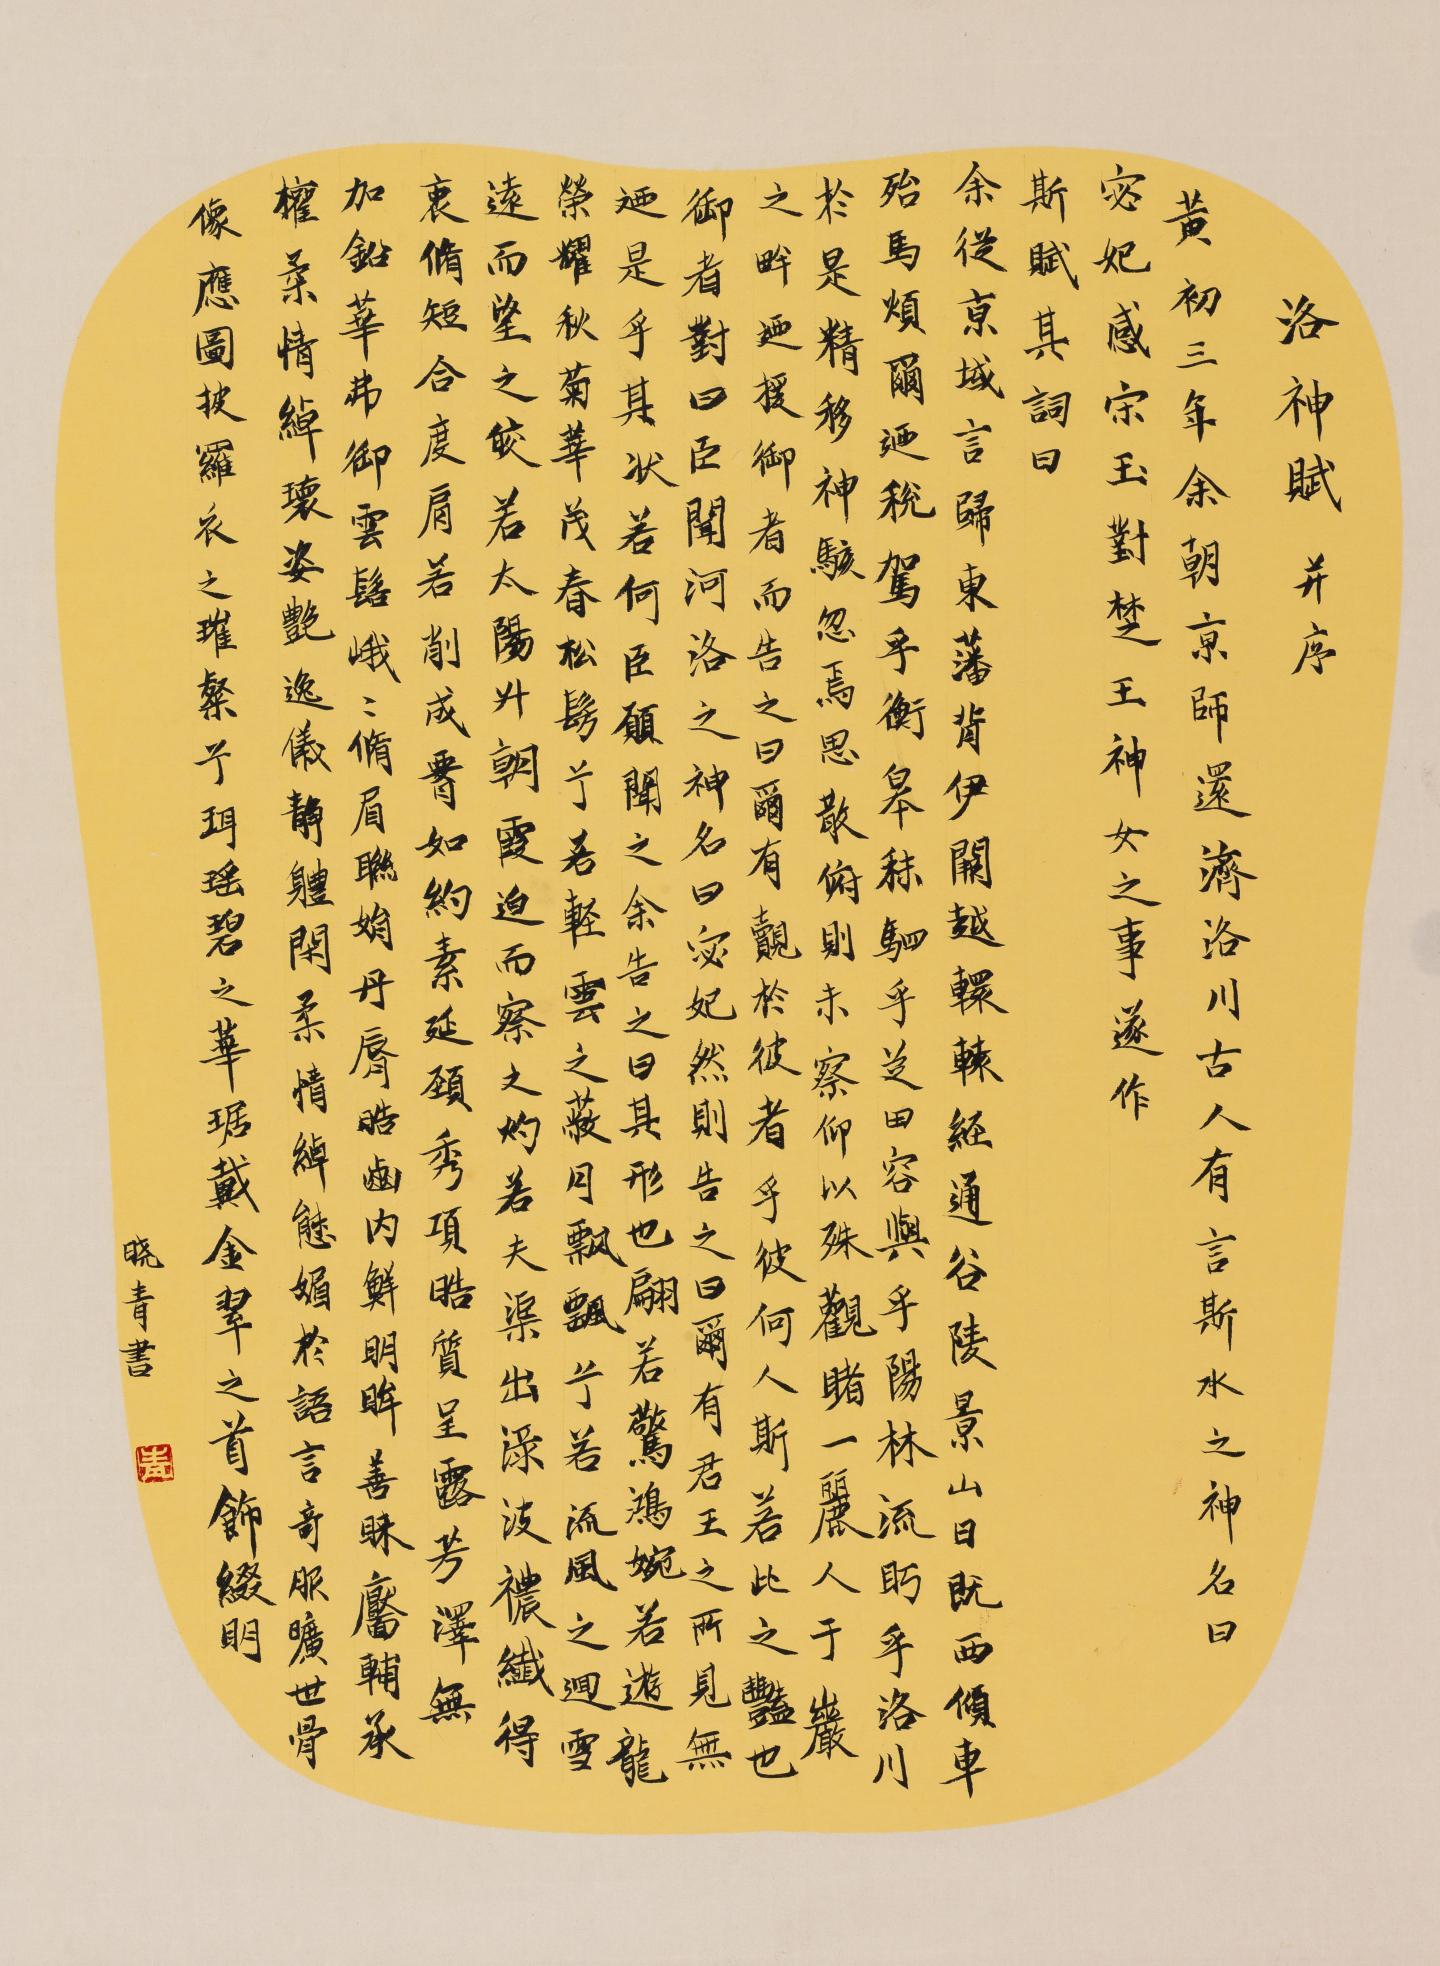 洛神賦 并序
黃初三年余朝京師還濟洛川古人有言斯水之神名曰
宓妃感宋玉對楚王神女之事遂作
斯賦其詞曰
余從京域言歸東藩背伊闕越轘轅經通谷陵景山日既西傾車
殆馬煩爾迺稅駕乎衡皋秣駟乎芝田容與乎陽林流眄乎洛川
於是精移神駭忽焉思散俯則未察仰以殊觀睹一麗人于巖
之畔迺援御者而告之曰爾有覿於彼者乎彼何人斯若此之豔也
御者對曰臣聞河洛之神名曰宓妃然則告之曰爾有君王之所見無
迺是乎其狀若何臣願聞之余告之曰其形也翩若驚鴻婉若遊龍
榮耀秋菊華茂春松髣兮若輕雲之蔽月飄飄兮若流風之迴雪
遠而望之皎若太陽升朝霞迫而察之灼若夫渠出淥波襛纖得
衷脩短合度肩若削成署如約素延頸秀項皓質呈露芳澤無
加鉛華弗御雲髻峨〻脩眉聯娟丹脣皓齒內鮮明眸善睞靨輔承
權柔情綽瓌姿艷逸儀靜體閑柔情綽態媚於語言奇服曠世骨
像應圖披羅衣之璀粲兮珥瑶碧之華琚戴金翠之首飾綴明
曉青書
青